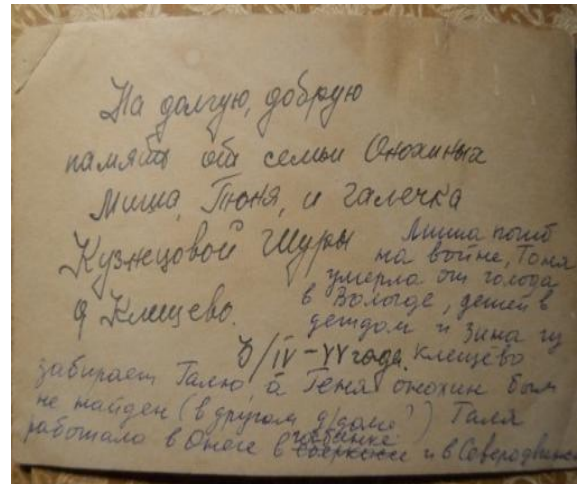 На долгую, добрую
память от семьи Онохиных
Миша, Тюня, и Галечка
Кузнецовой Шуры
д Клещево.
Миша погиб
на войне, Тоня
умерла от голода
в Вологде, детей в
детдом и Зина из
Клещево
забирает Галю а Геня Онохин был
не найден (в другом д/доме?) Галя
работала в Онеге в сбербанке и в Северодвинске